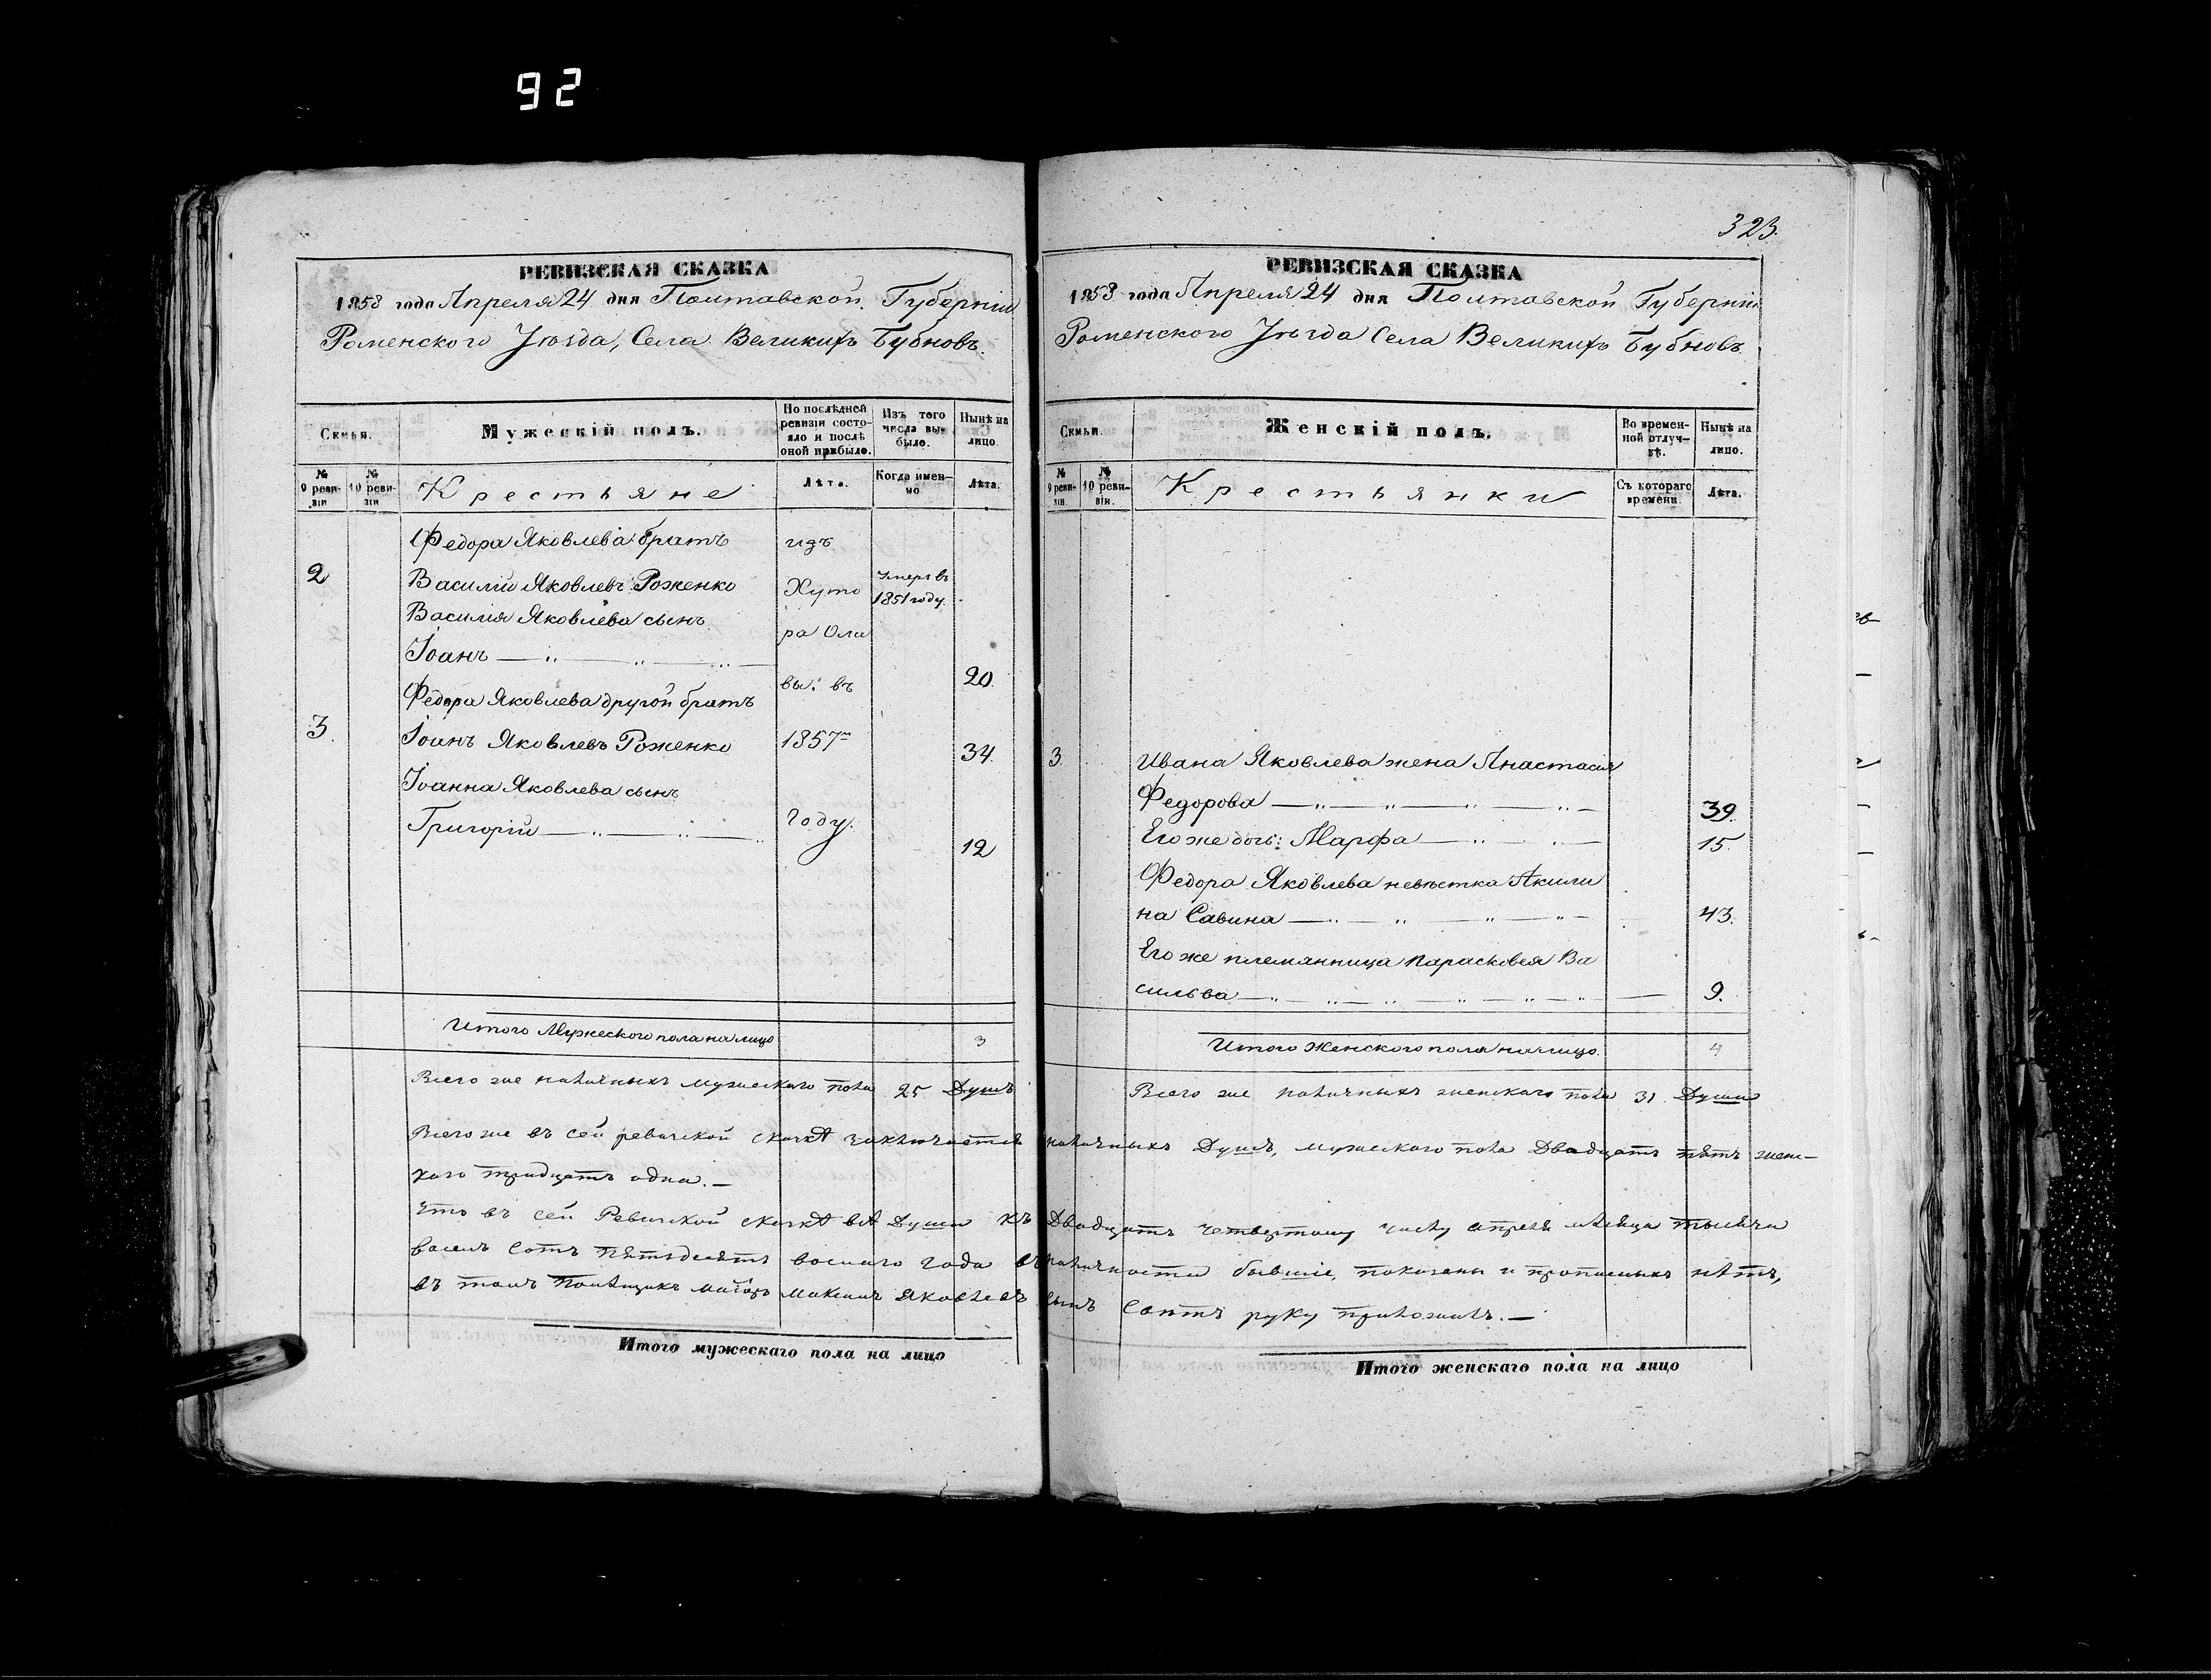 92
РЕВИЗСКАЯ СКАЗКА
1858 года Апреля 24 дня Полтавской Губерніи
Роменского Уѣзда, Села Великихъ Бубновъ.
Семья.
Мужескій полъ.
По послѣдней ревизіи состояло и послѣ оной прибыло.
Изъ того числа выбыло.
Нынѣ на лицо.
№ 9 ревизіи
№ 10 ревизіи
Крестьяне
Лѣта.
Когда именно.
Лѣта.
Федора Яковлева братъ изъ
2 Василій Яковлевъ Роженко Хуто умеръ въ 1851 году.
Василія Яковлева сынъ ра Оли
Іоанъ 20.
вы: въ
Федора Яковлева другой братъ
3. Іоанъ Яковлевъ Роженко 1857м 34.
Іоанна Яковлева сынъ
Григорій году. 12
Итого Мужеского пола на лицо 3
Всего же наличныхъ мужескаго пола 25 Душъ
Итого мужескаго пола на лицо
323.
РЕВИЗСКАЯ СКАЗКА
1858 года Апреля 24 дня Полтавской Губерніи
Роменского Уѣзда Села Великихъ Бубновъ.
Семьи.
Женскій полъ.
Во временной отлучкѣ.
Нынѣ на лицо.
№ 9 ревизіи.
№ 10 ревизіи.
Крестьянки
Съ котораго времени.
Лѣта.
3. Ивана Яковлева жена Анастасия
Федорова 39.
Его же дочь: Марфа 15.
Федора Яковлева невѣстка Акили
на Савина 43.
Его же племянница Парасковея Ва
сильва 9.
Итого Женского пола на лицо. 4
Всего же наличныхъ женскаго пола 31 Душа
Всего же въ сей ревизской сказкѣ заключается наличныхъ Душъ, мужескаго пола Двадцать пять женс-
каго тридцать одна.—
Что въ сей Ревизской сказкѣ всѣ Души къ Двадцать четвертому числу апреля мѣсяца тысяча
восемь сотъ пятьдесятъ восмаго года въ наличности бывшіе, показаны и прописныхъ нѣтъ,
въ томъ Помѣщикъ маіоръ Максимъ Яковлевъ сынъ руку приложилъ.—
Итого женскаго пола на лицо